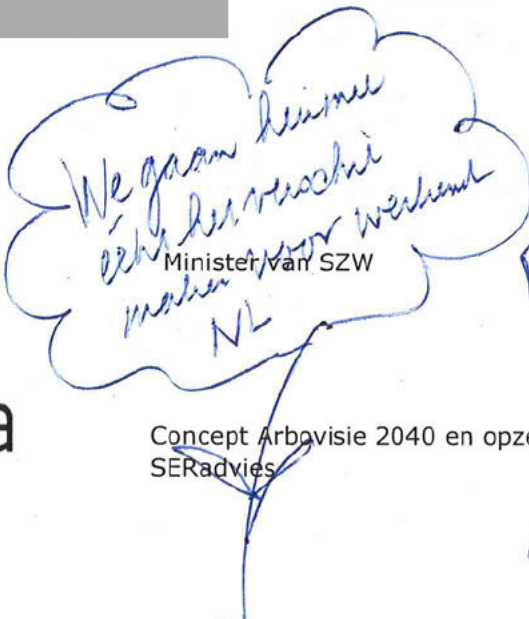 We gaan hiermee
écht het verschil
maken voor werkend
NL
Minister van SZW
a
Concept Arbovisie 2040 en opze
SERadvies